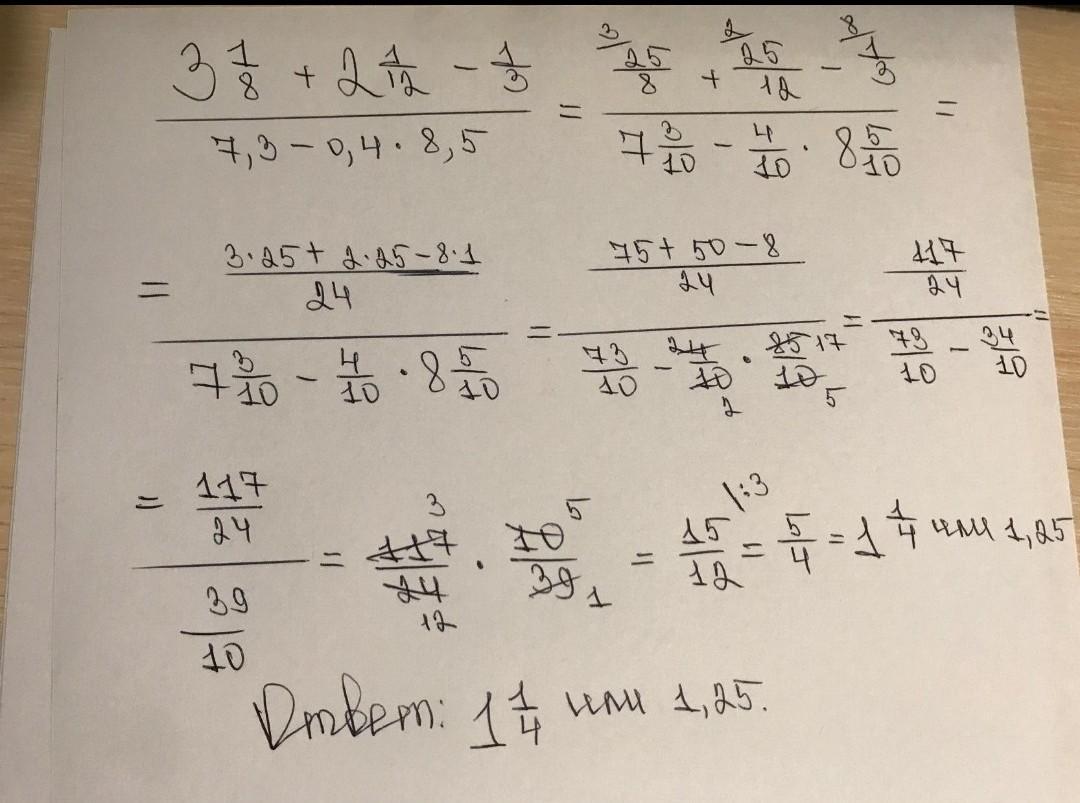 (3 1/8 + 2 1/12 − 1/3) / (7,3 − 0,4 · 8,5) = (³⁄ 25/8 + ²⁄ 25/12 − ⁸⁄ 1/3) / (7 3/10 − 4/10 · 8 5/10) =
= ((3·25 + 2·25 − 8·1)/24) / (7 3/10 − 4/10 · 8 5/10) = ((75 + 50 − 8)/24) / (73/10 − 24/10 2 · 85 17/10 5) = (117/24) / (73/10 − 34/10) =
= (117/24) / (39/10) = 117 3/24 12 · 10 5/39 1 = 15/12 \:3 = 5/4 = 1 1/4 или 1,25
Ответ: 1 1/4 или 1,25.